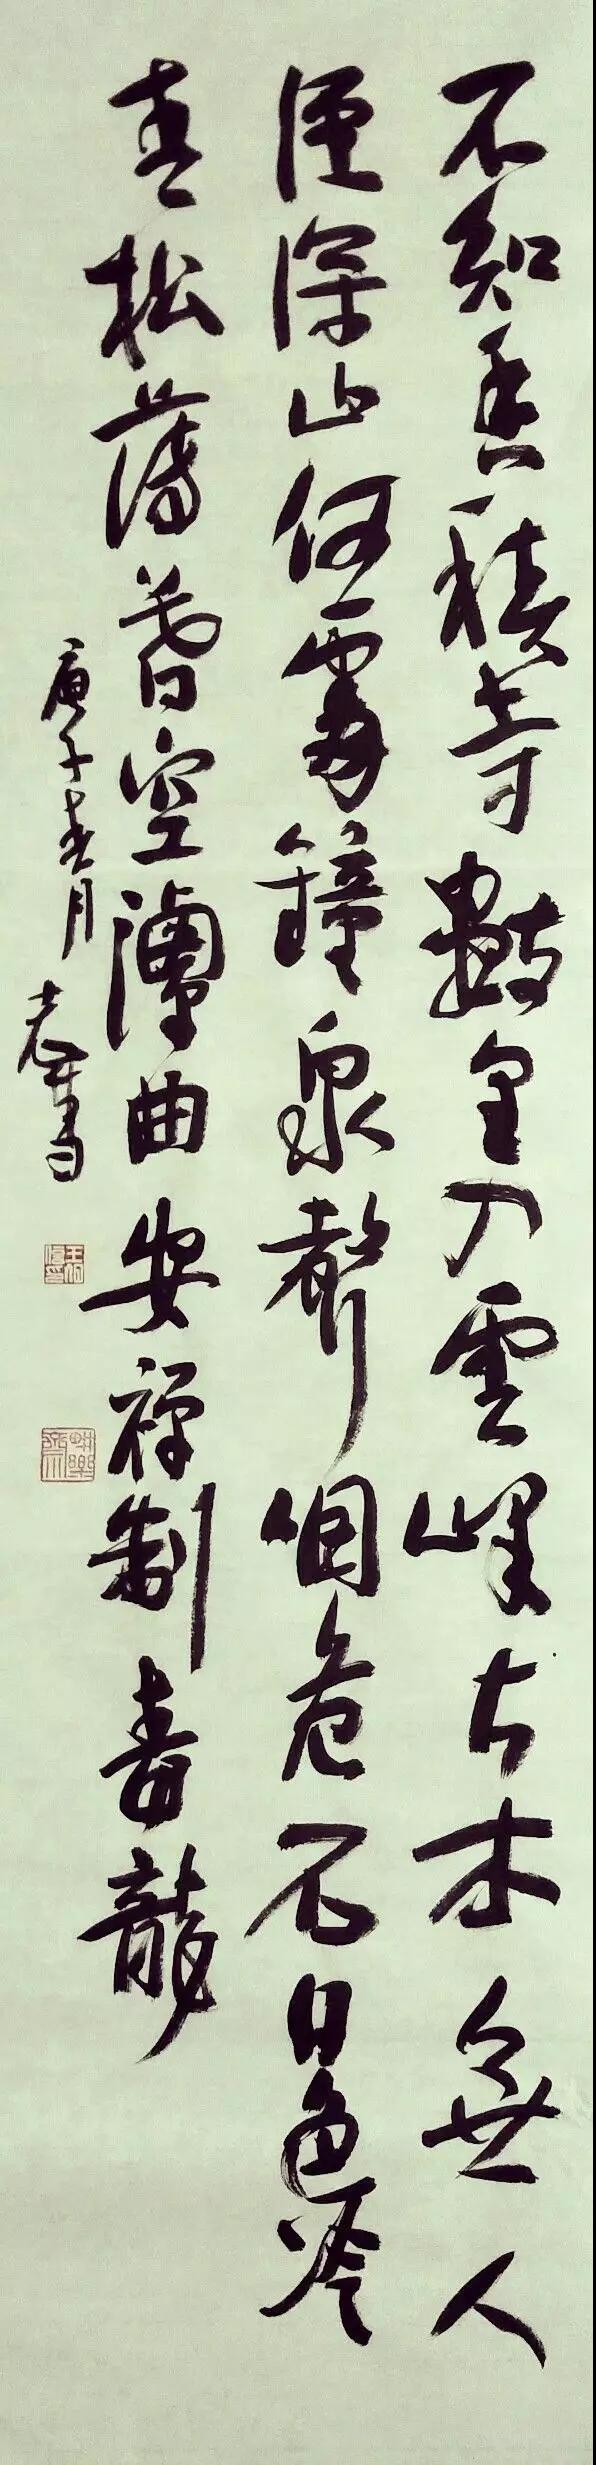 不知香積寺數里入雲峰古木無人
徑深山何處鐘泉聲咽危石日色冷
青松薄暮空潭曲安禪制毒龍
庚子春月